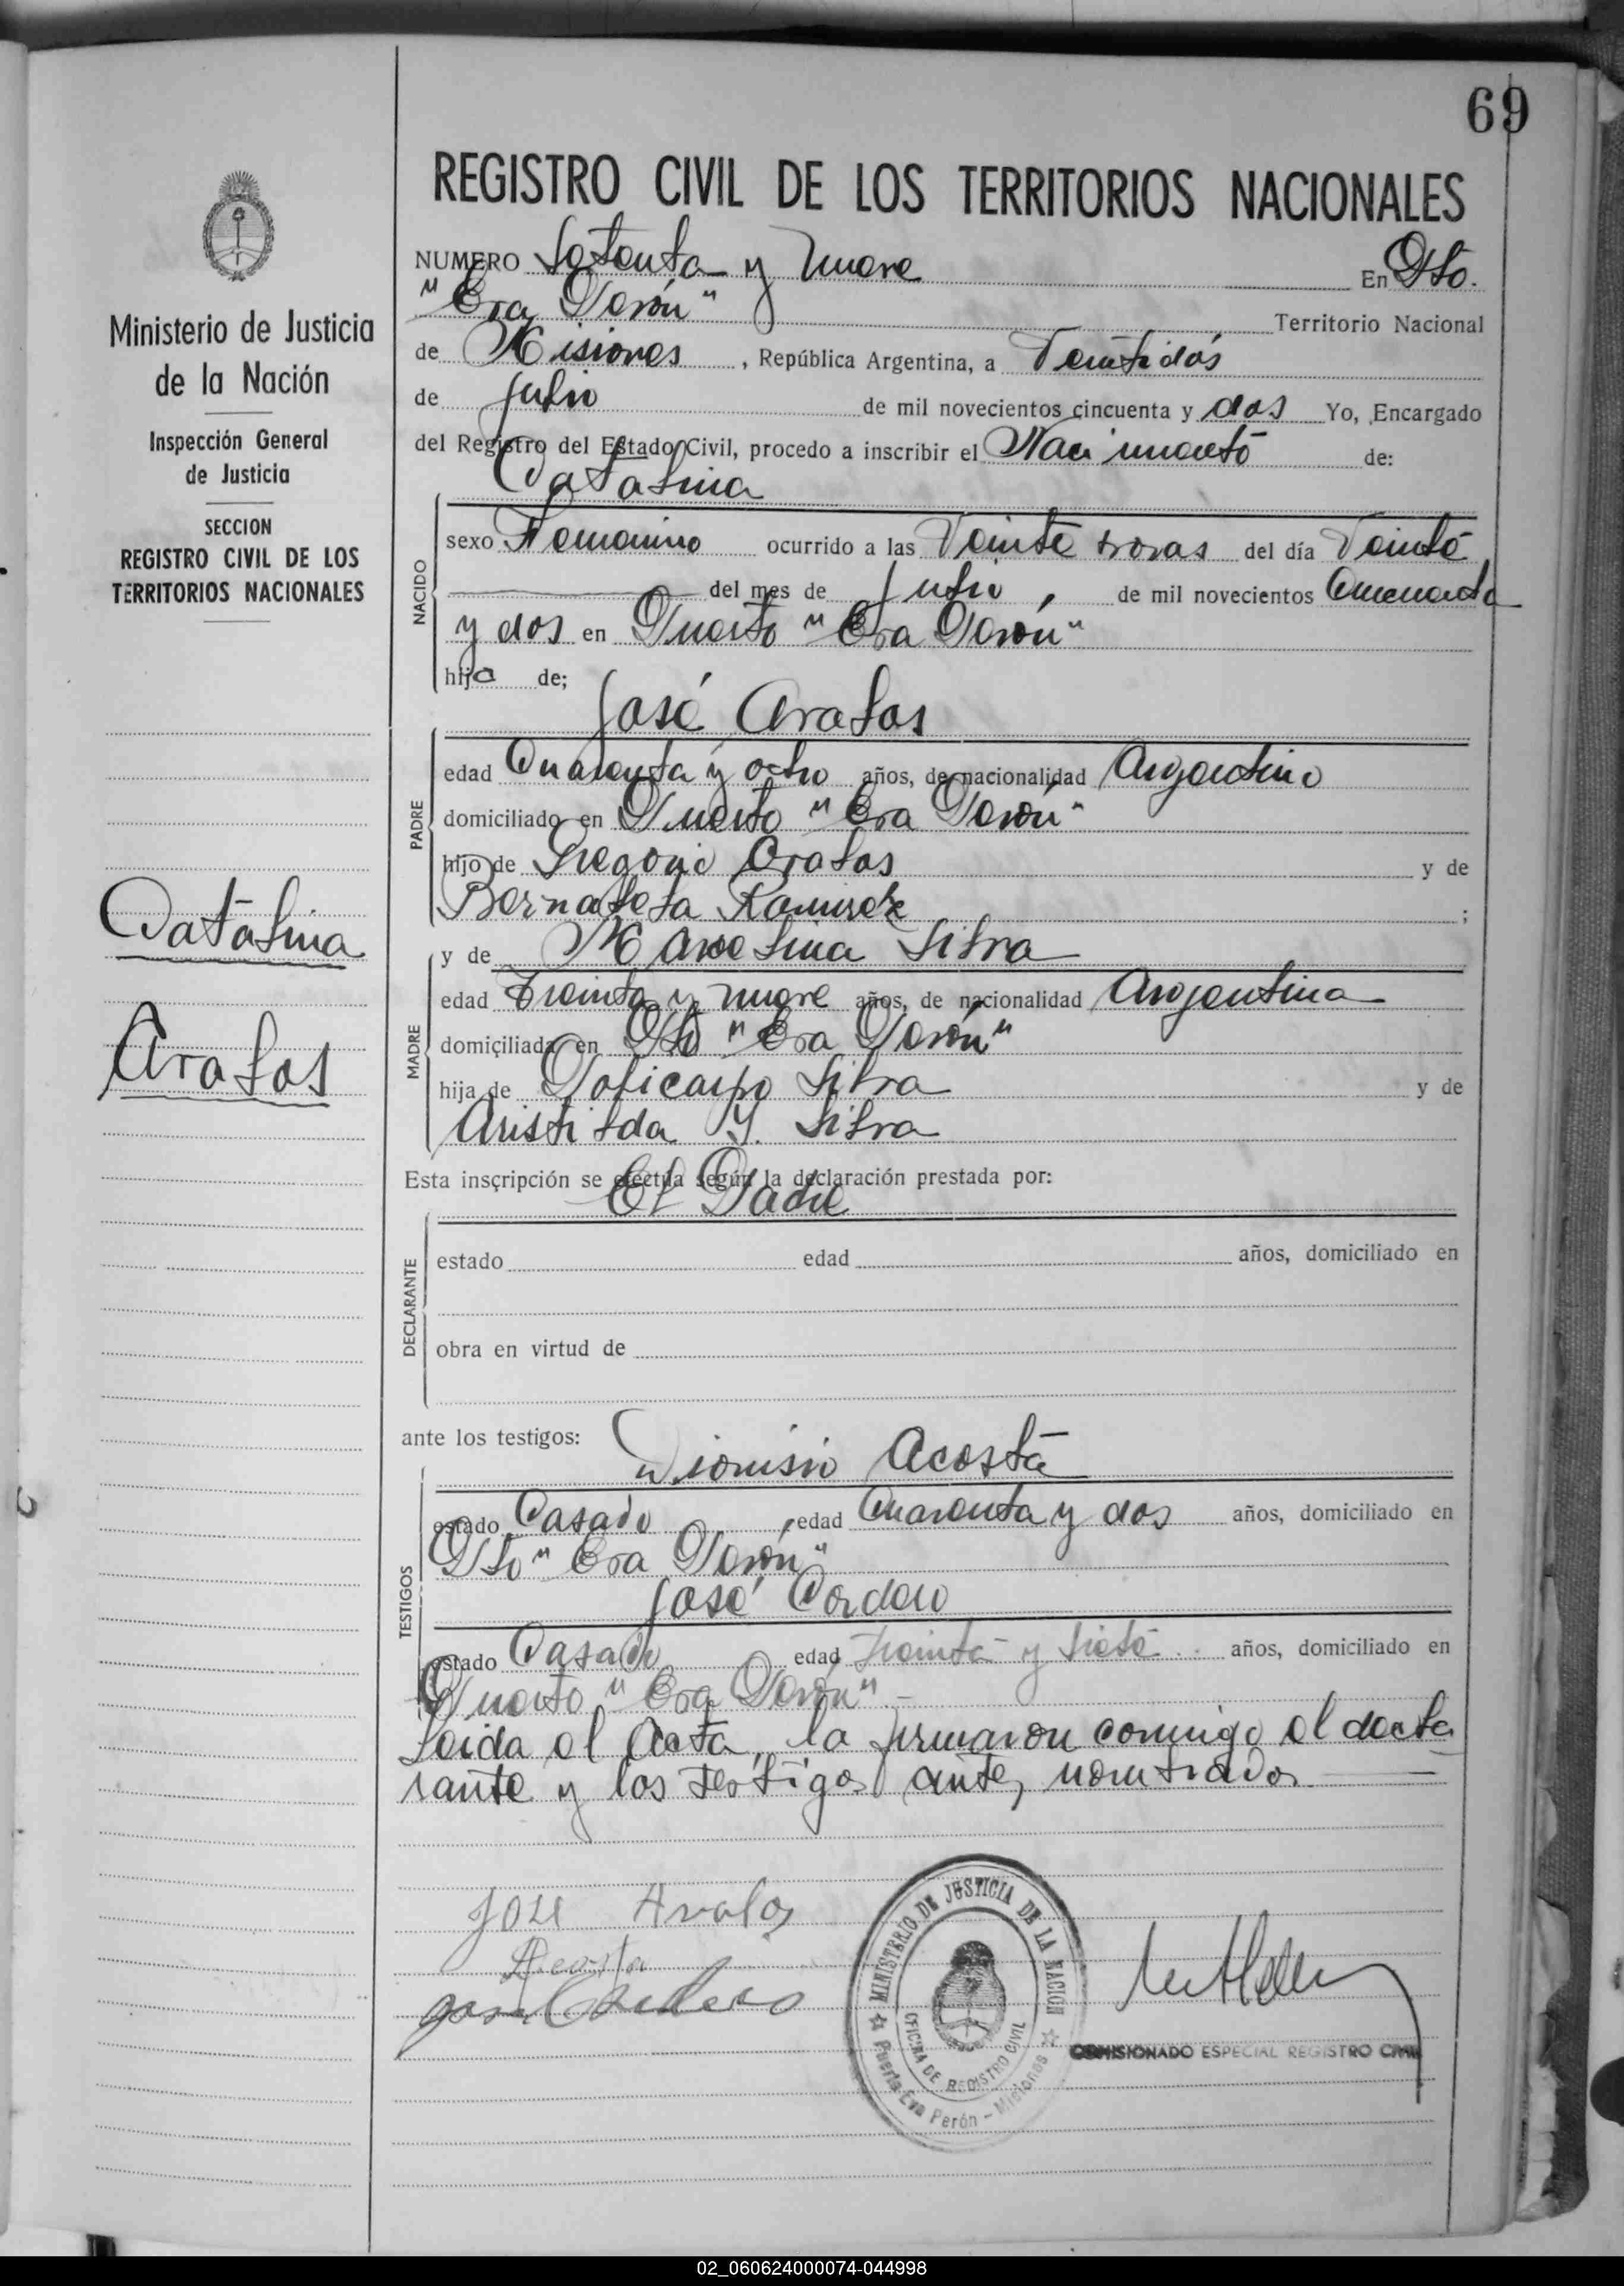 69
REGISTRO CIVIL DE LOS TERRITORIOS NACIONALES
NUMERO Setenta y nueve En Pto.
"Eva Perón" Territorio Nacional
de Misiones, República Argentina, a Veintidós
de Julio de mil novecientos cincuenta y dos Yo, Encargado
del Registro del Estado Civil, procedo a inscribir el Nacimiento de:
Catalina
NACIDO
sexo Femenino ocurrido a las Veinte horas del día Veinte
del mes de Julio, de mil novecientos Cincuenta
y dos en Puerto "Eva Perón"
hija de;
José Avalos
PADRE
edad Cuarenta y ocho años, de nacionalidad Argentino
domiciliado en Puerto "Eva Perón"
hijo de Gregorio Avalos y de
Bernabela Ramirez ;
y de Marcelina Silva
MADRE
edad Treinta y nueve años, de nacionalidad Argentina
domiciliada en Pto "Eva Perón"
hija de Policarpo Silva y de
Aristilda Y. Silva
Esta inscripción se efectúa según la declaración prestada por:
El Padre
DECLARANTE
estado edad años, domiciliado en
obra en virtud de
ante los testigos:
Dionisio Acosta
TESTIGOS
estado Casado, edad Cuarenta y dos años, domiciliado en
Pto "Eva Perón"
José Cordero
estado Casado edad Treinta y siete años, domiciliado en
Puerto "Eva Perón"
Leida el Acta, la firmaron conmigo el decla
rante y los testigos antes nombrados
Jose Avalos
Acosta
Jose Cordero
MINISTERIO DE JUSTICIA DE LA NACION
OFICINA DE REGISTRO CIVIL
Puerto Eva Perón - Misiones
COMISIONADO ESPECIAL REGISTRO CIVIL
Ministerio de Justicia
de la Nación
Inspección General
de Justicia
SECCION
REGISTRO CIVIL DE LOS
TERRITORIOS NACIONALES
Catalina
Avalos
02_060624000074-044998